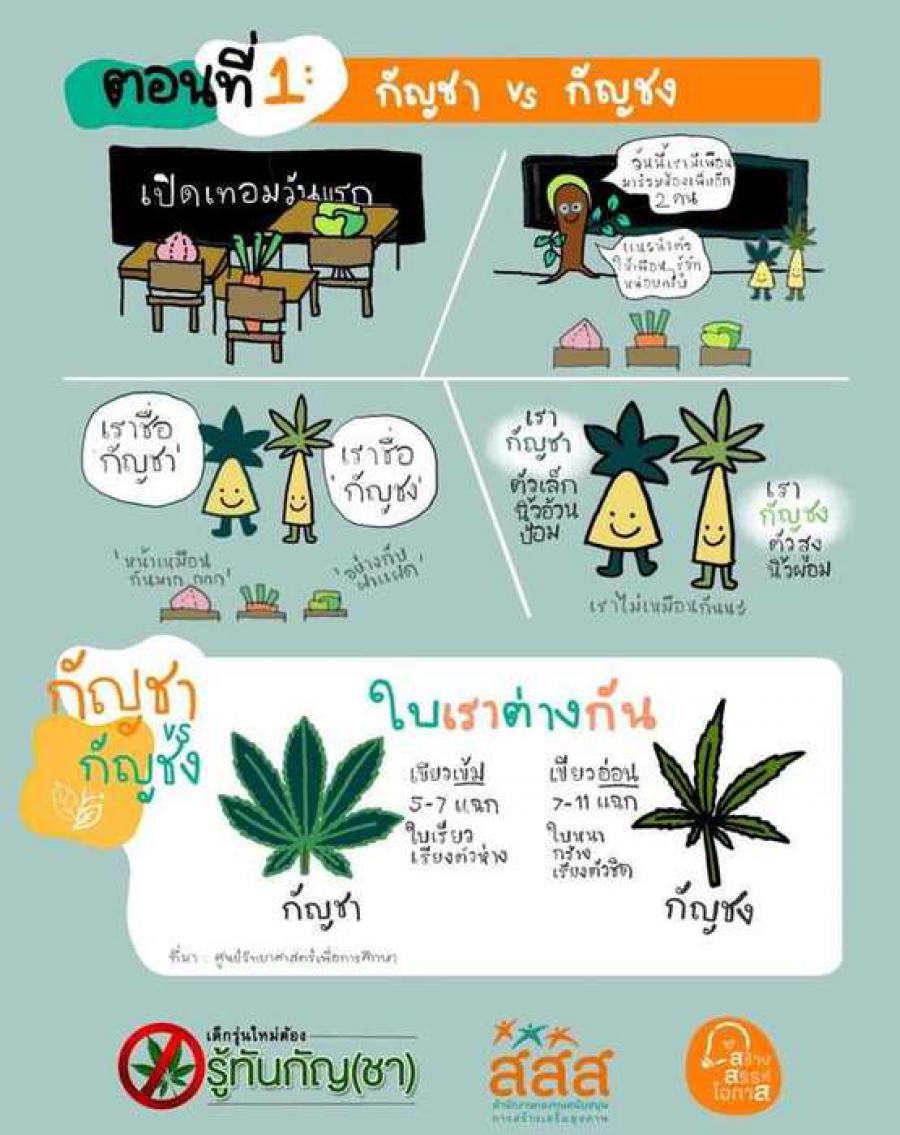 ตอนที่ 1:
กัญชา vs กัญชง
เปิดเทอมวันแรก
วันนี้เรามีเพื่อน
มาร่วมห้องเพิ่มอีก
2 คน
แนะนำตัว
ให้เพื่อนๆ รู้จัก
หน่อยครับ
เราชื่อ
'กัญชา'
เราชื่อ
'กัญชง'
'หน้าเหมือน
กันมาก
'อย่างกับ
ฝาแฝด'
เรา
กัญชา
ตัวเล็ก
นิ้วอ้วน
ป้อม
เรา
กัญชง
ตัวสูง
นิ้วผอม
เราไม่เหมือนกันนะ
กัญชา
vs
กัญชง
ใบเราต่างกัน
เขียวเข้ม
5-7 แฉก
ใบเรียว
เรียงตัวห่าง
เขียวอ่อน
7-11 แฉก
ใบหนา
กว้าง
เรียงตัวชิด
กัญชา
กัญชง
ที่มา : ศูนย์วิทยาศาสตร์เพื่อการศึกษา
เด็กรุ่นใหม่ต้อง
รู้ทันกัญ(ชา)
สสส
สำนักงานกองทุนสนับสนุน
การสร้างเสริมสุขภาพ
สร้าง
สรรค์
โอกาส